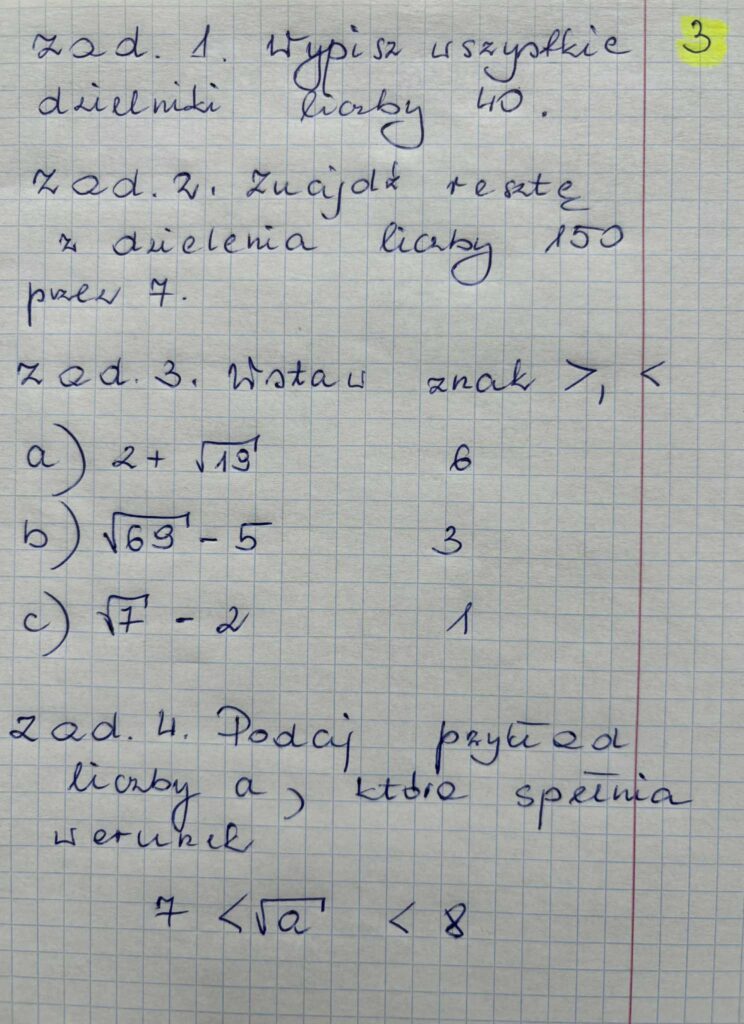 zad. 1. Wypisz wszystkie 3
dzielniki liczby 40.
zad. 2. Znajdź resztę
z dzielenia liczby 150
przez 7.
zad. 3. Wstaw znak >, <
a) 2 + √19 6
b) √69 - 5 3
c) √7 - 2 1
zad. 4. Podaj przykład
liczby a, która spełnia
warunek
7 < √a < 8